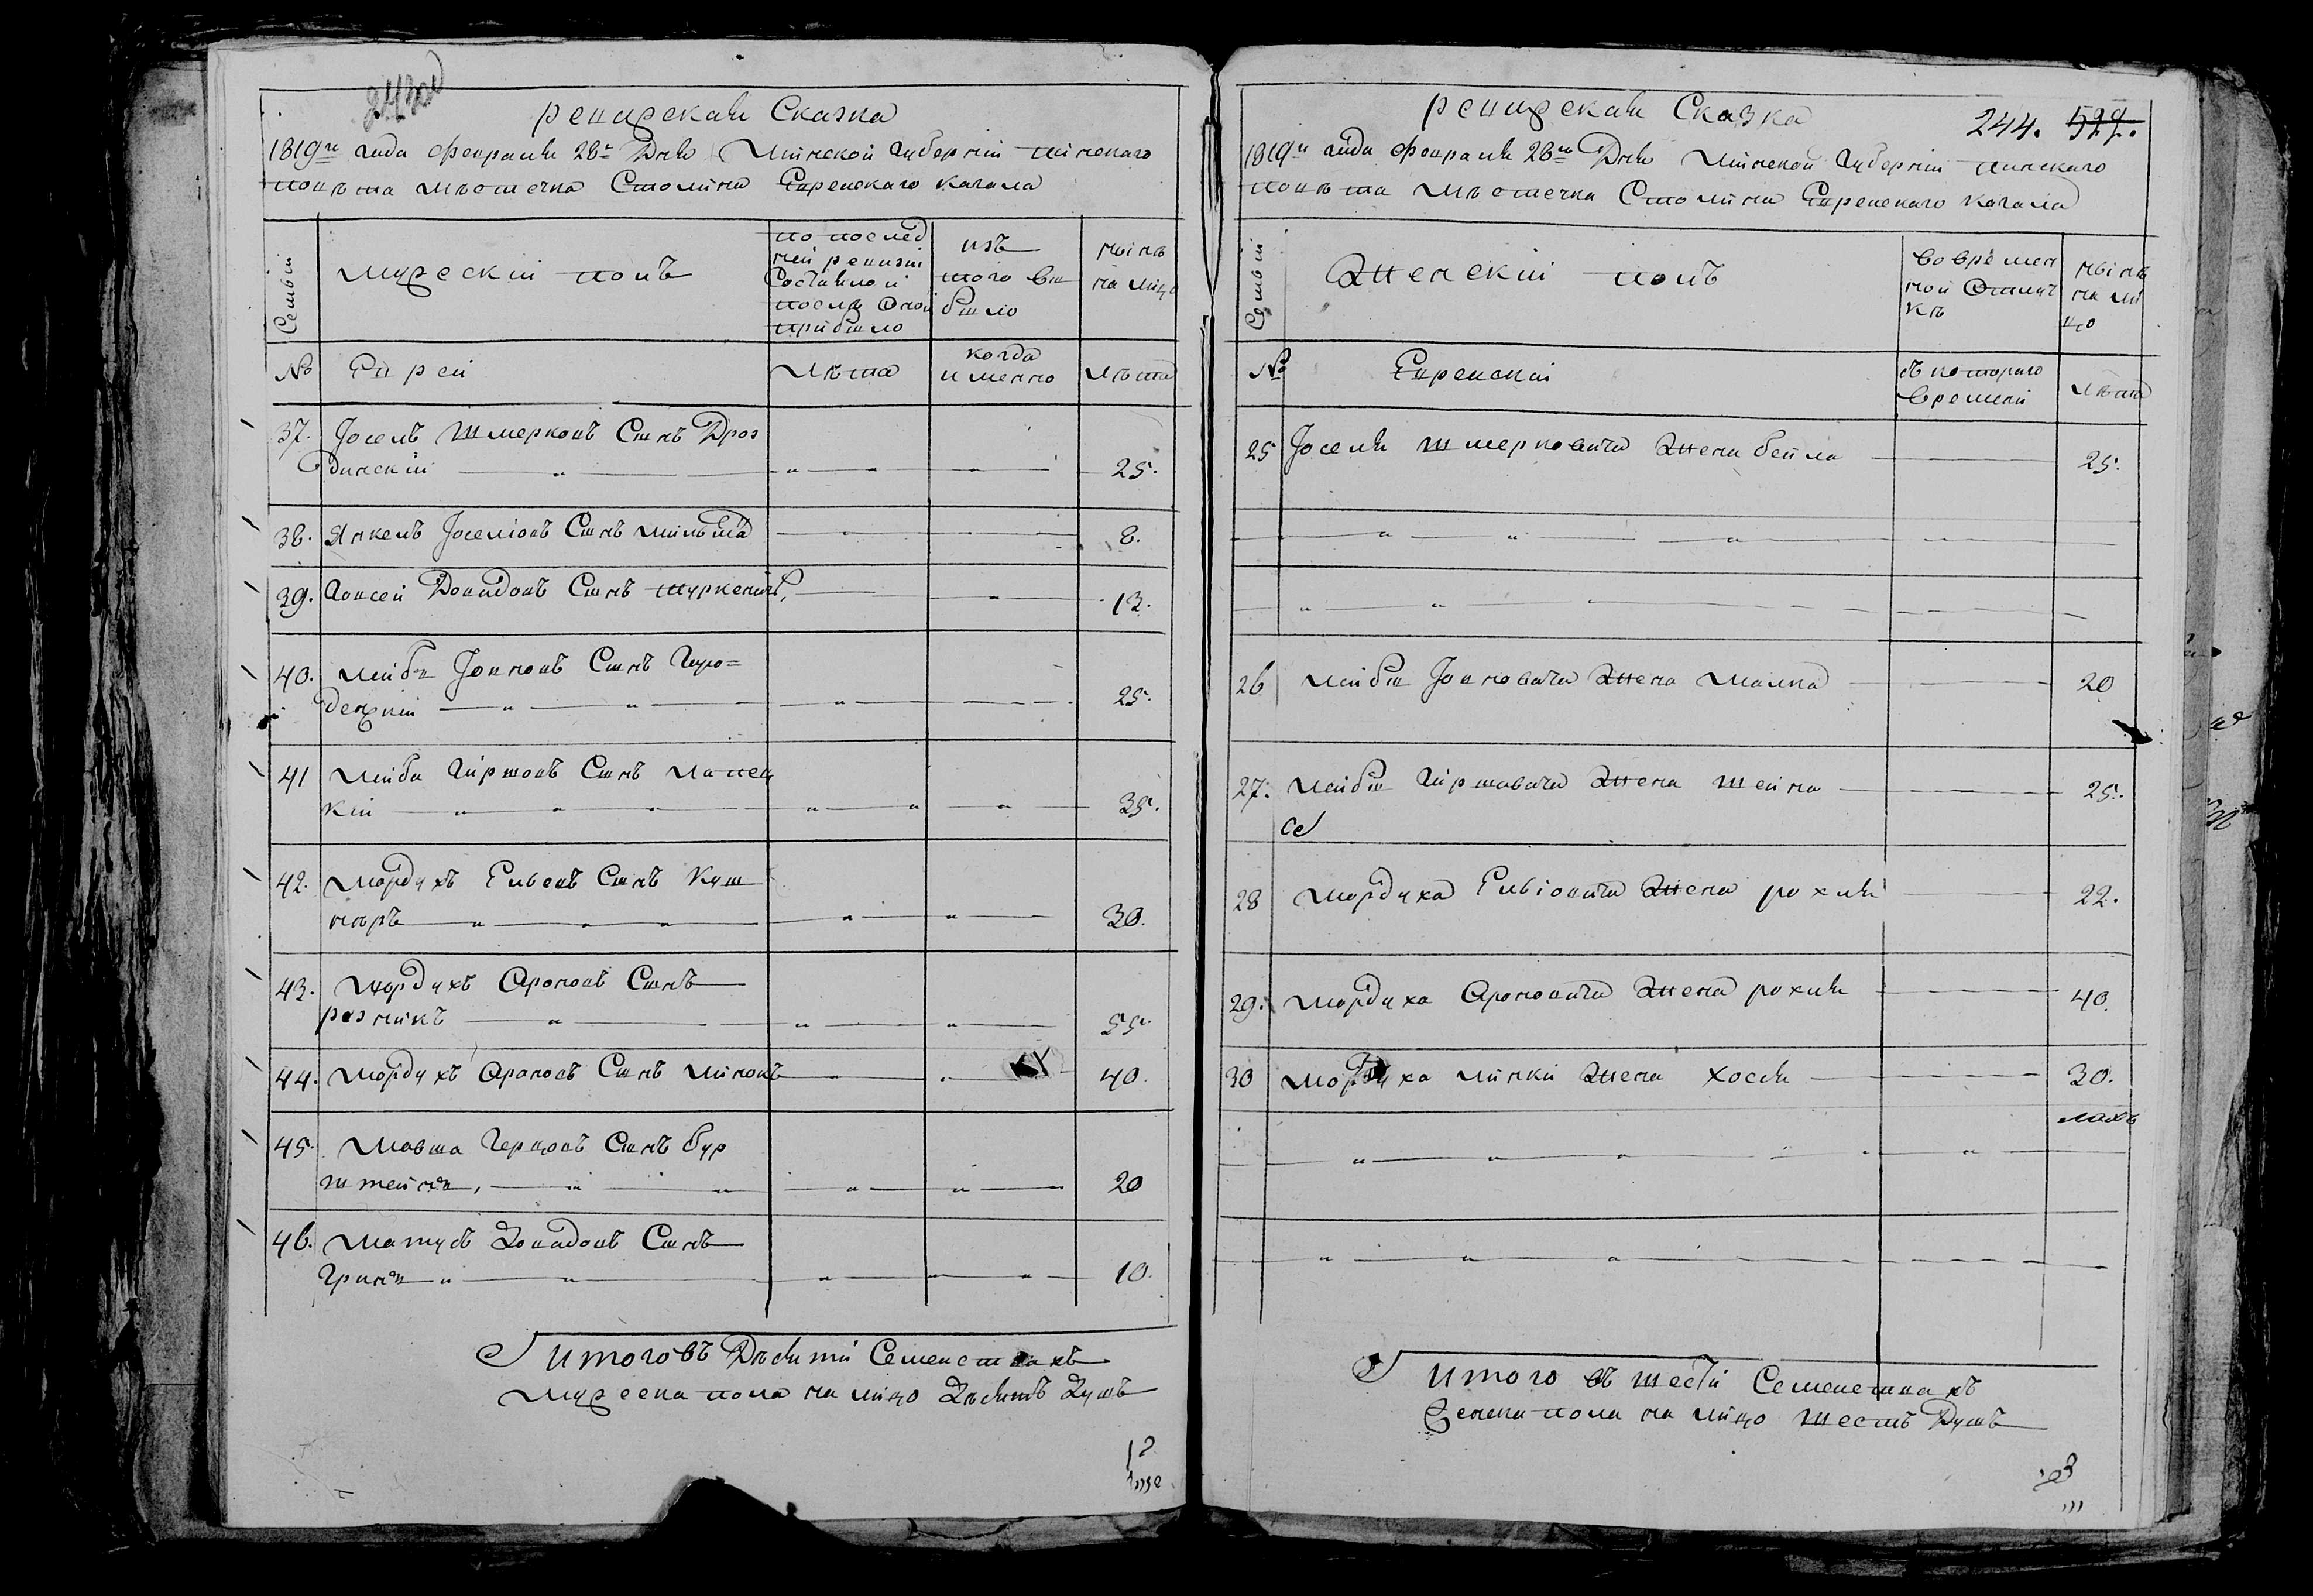 ревизская Сказка
1819го года февраля 28го Дня Минской Губернiи пинскаго
повѣта мѣстечка Столина Еврейскаго Кагала
Семьи
мужескiй полъ
по послед
ней ревизiи
Состояло и
после оной
прибыло
изъ
того вы
было
нынѣ
на лицо
№
Евреи
Лѣта
когда
именно
Лѣта
37. Іосель Шмерковъ Сынъ Дроз
динскiй 25.
38. Янкель Іоселiовъ Сынъ 8.
39. Довидовъ Сынъ Туркеничъ, 13.
40. Лейба Іовновъ Сынъ Горо=
децкiй 25.
41 Лейба Гиршовъ Сынъ Лапец
кiй 35.
42. Мордухъ Ельевъ Сынъ Куш
неръ 30.
43. Мордухъ Ароновъ Сынъ
резникъ 55.
44. Мордухъ Ароновъ Сынъ 40.
45. Мовша Герцовъ Сынъ бур
штейнъ, 20
46. Матусъ Довидовъ Сынъ
10.
итого въ Десяти Семействахъ
мужеска пола на лицо Десять Душъ
ревизская Сказка
244. 527.
1819го года февраля 28го Дня Минской Губернiи пинскаго
повѣта мѣстечка Столина Еврейскаго Кагала
Семьи
Женскiй полъ
во времен
ной отлуч
кѣ
нынѣ
на ли
цо
№
Еврейскiй
съ котораго
времени
Лѣта
25 Іоселя Шмерковича Жена бейла 25.
26 Лейбы Іовновича Жена Малка 20
27. Лейбы Гиршовича Жена Шейна 25.
28 Мордуха Елiовича Жена рохля 22.
29. Мордуха Ароновича Жена рохля 40.
30 Мордуха Жена Хося 30.
итого въ шести Семействахъ
Женска пола на лицо шесть Душъ